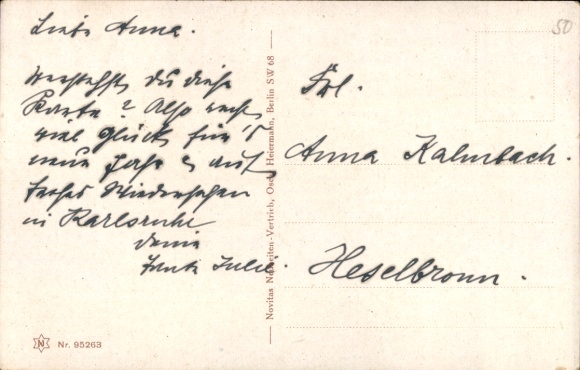 Liebe Anna.
Verstehst du diese
Karte? Also recht
viel Glück für's
neue Jahr & auf
frohes Wiedersehen
in Karlsruhe
deine
Tante Julie.
Nr. 95263
Novitas Neuheiten-Vertrieb, Oscar Heiermann, Berlin SW 68
50
Frl.
Anna Kalmbach.
Heselbronn.